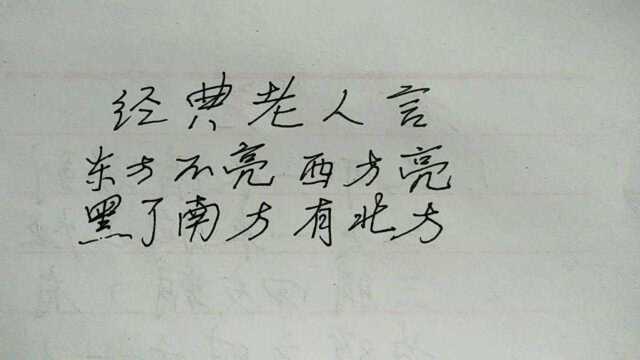 经典老人言
东方不亮 西方亮
黑了南方有北方